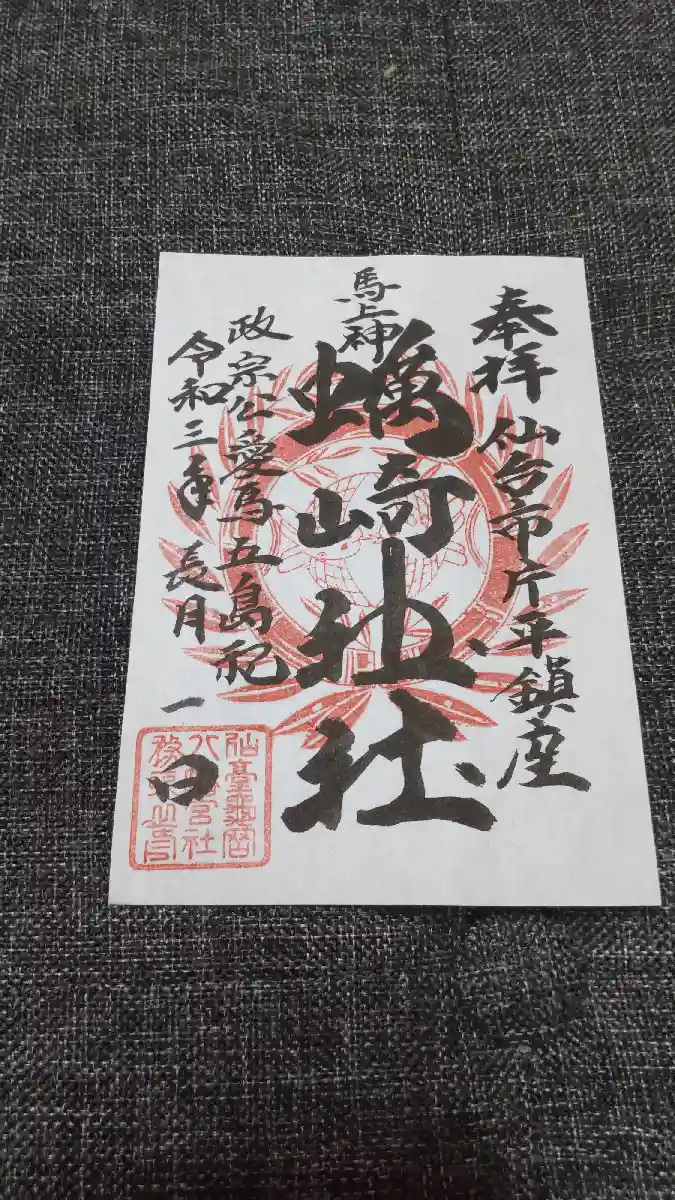 奉拝 仙台市片平鎮座
馬上神
蠣崎神社
政宗公愛馬五島祀
令和三年長月一日
仙臺龜岡
八幡宮社
務所之